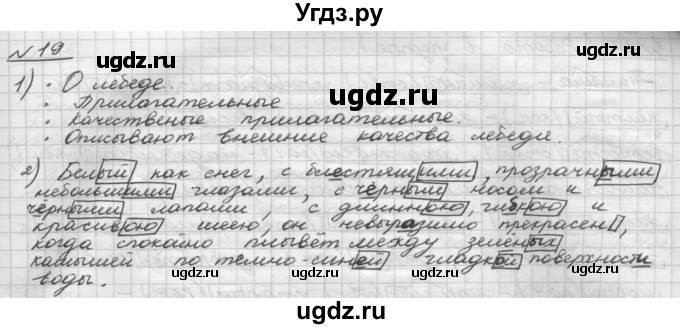 Угдз.ру
№19
ugdz.ru ugdz.ru
1) • О лебеде.
ugdz.ru
• Прилагательные
• Качественые прилагательные.
• Описывают внешние качества лебедя.
ugdz.ru ugdz.ru
2) Белый как снег, с блестящими, прозрачными
небольшими глазами, с чёрным носом и
чёрными лапами, с длинною, гибкою и
ugdz.ru
красивою шеею, он невыразимо прекрасен,
когда спокойно плывёт между зелёных
камышей по темно-синей гладкой поверхности
ugdz.ru ugdz.ru
воды.